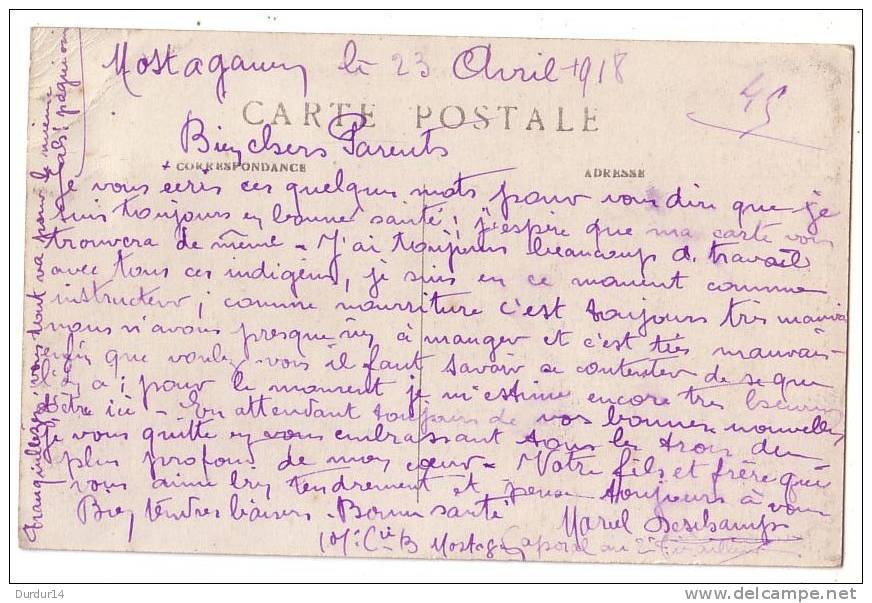 Mostaganem le 23 Avril 1918
45
CARTE POSTALE
Bien chers Parents
CORRESPONDANCE
ADRESSE
Je vous écris ces quelques mots pour vous dire que je
suis toujours en bonne santé ; j'espère que ma carte vous
trouvera de même - J'ai toujours beaucoup de travail
avec tous ces indigens, je suis en ce moment comme
instructeur ; comme nourriture c'est toujours très mauvais
nous n'avons presque rien à manger et c'est très mauvais -
enfin que voulez vous il faut savoir se contenter de se que
l'on a ; pour le moment je m'estime encore très heureux
d'être ici - En attendant toujours de vos bonnes nouvelles
je vous quitte en vous embrassant tous les trois du
plus profond de mon cœur - Votre fils et frère qui
vous aime bien tendrement et pense toujours à vous
Bien tendres baisers - Bonne santé
Marcel Deschamps
Caporal au 2e Tirailleurs
Cie Mostaganem
tranquillisez vous tout va pour le mieux
Durdur14
www.delcampe.net